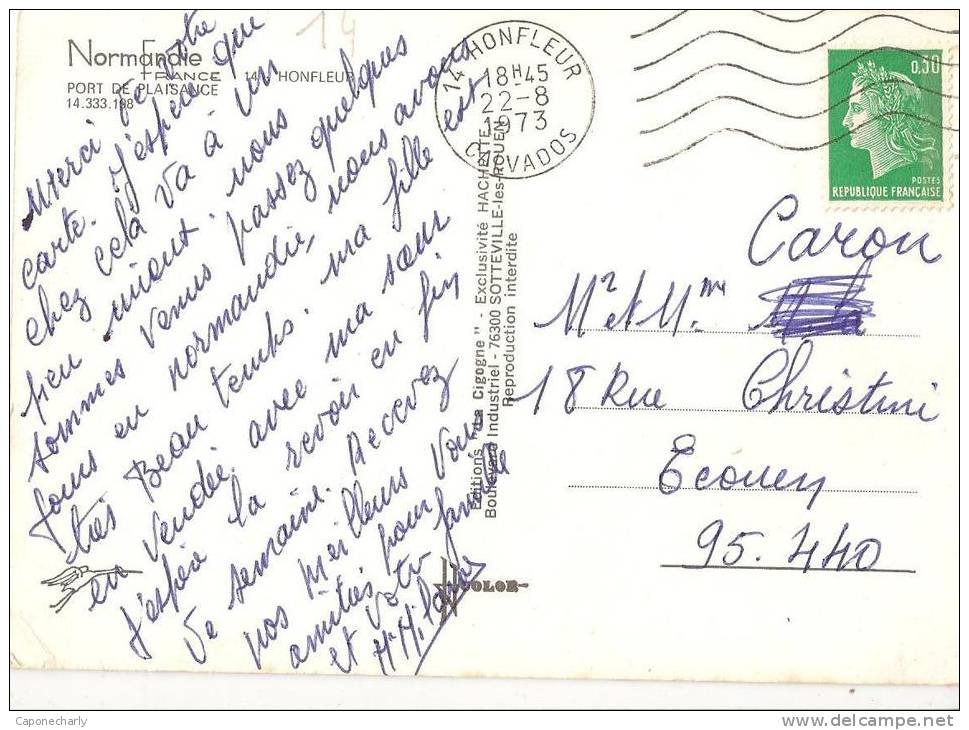 Normandie
FRANCE
14 HONFLEUR
PORT DE PLAISANCE
14.333.198
14
14 HONFLEUR
18H45
22-8
1973
CALVADOS
0,30
POSTES
REPUBLIQUE FRANÇAISE
Merci de votre
carte. J'espère que
chez cela va à un
bien mieux. nous
sommes venus passez quelques
jours en normandie, nous avons
très Beau temps. ma fille est
en vendée avec ma sœur
j'espère la revoir en fin
de semaine. Recevez
nos meilleurs vœux
amitiés pour vous
et votre famille
Editions "La Cigogne" - Exclusivité HACHETTE
Boulevard Industriel - 76300 SOTTEVILLE-les-ROUEN
Reproduction interdite
COLOR
Caron
Mr et Mme
18 Rue Christini
Ecouen
95.440
Caponecharly
delcampe.net